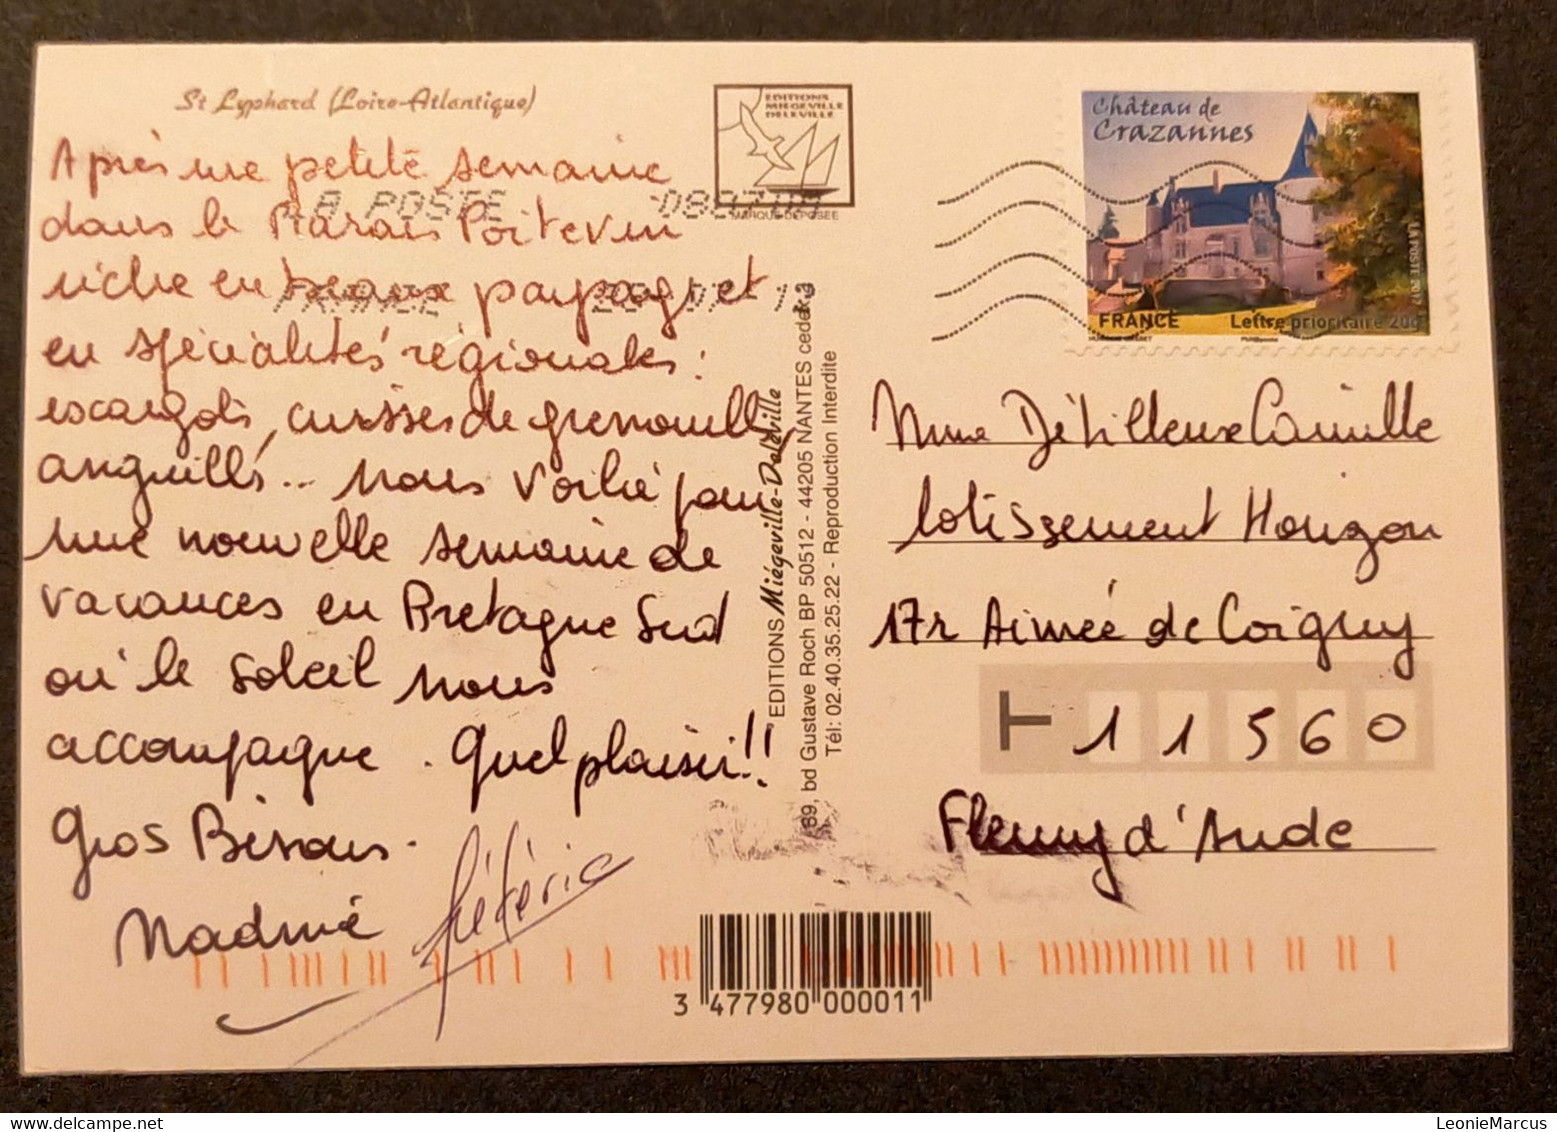 St Lyphard (Loire-Atlantique)
Après une petite semaine
dans le Marais Poitevin
riche en beaux paysages et
en spécialités régionales :
escargots, cuisses de grenouilles,
anguilles... nous voilà pour
une nouvelle semaine de
vacances en Bretagne Sud
où le soleil nous
accompagne. Quel plaisir!!
Gros Bisous.
Nadine
frédéric
LA POSTE
FRANCE
EDITIONS
MIEGEVILLE
DELEVILLE
MARQUE DEPOSEE
EDITIONS Miégeville-Deléville
69, bd Gustave Roch BP 50512 - 44205 NANTES cedex
Tél: 02.40.35.25.22 - Reproduction Interdite
Château de
Crazannes
LA POSTE 2012
FRANCE
Lettre prioritaire 20g
Mme Camille
lotissement Horizon
17 r Aimée de Coigny
11560
Fleury d'Aude
3 477980 000011
LeonieMarcus